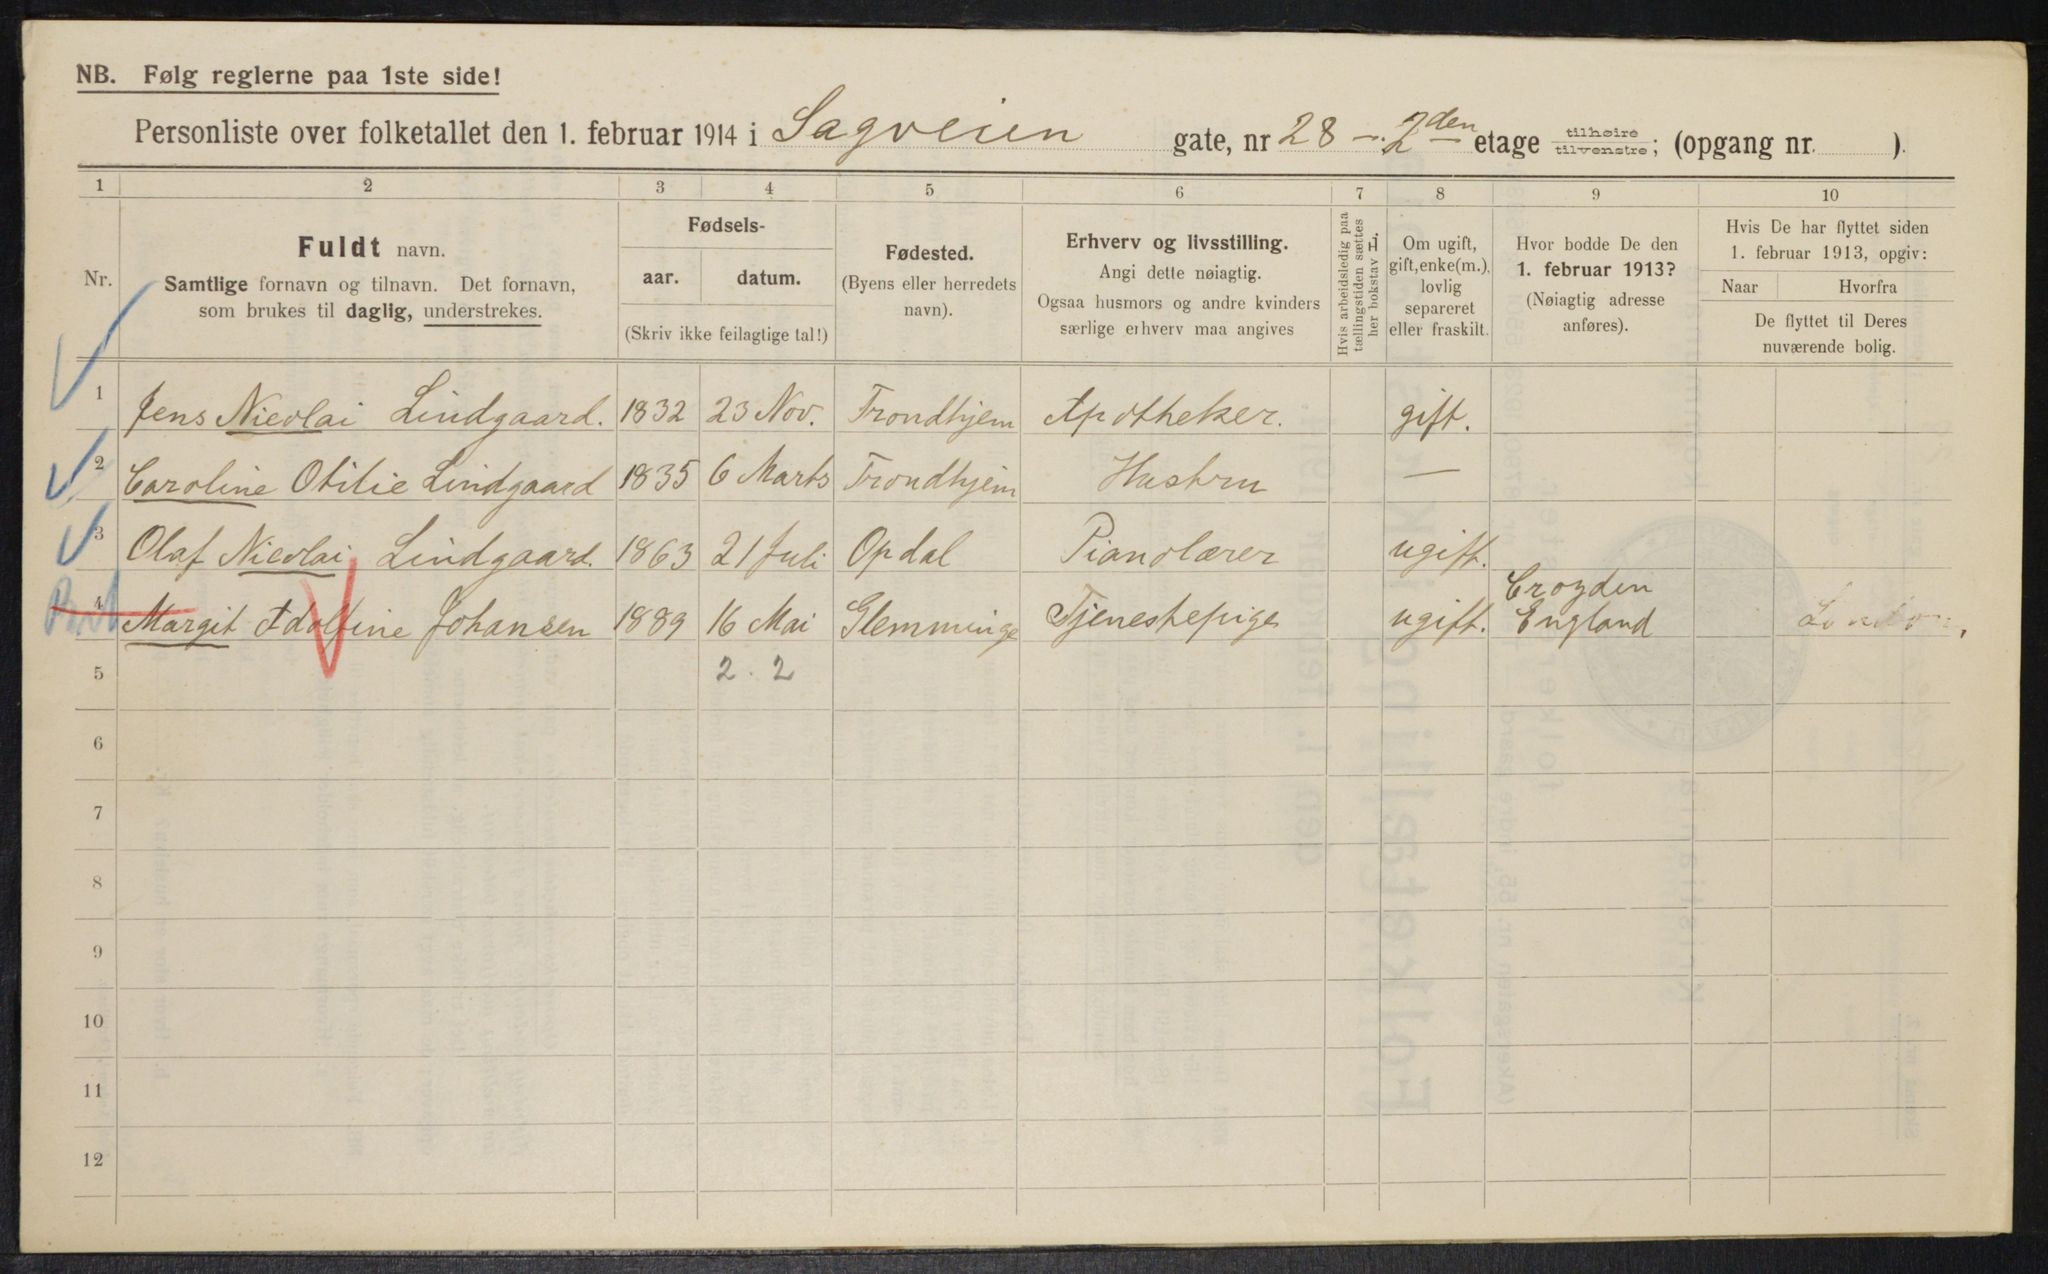 NB. Følg reglerne paa 1ste side!
Personliste over folketallet den 1. februar 1914 i Sagveien gate, nr 28 - 2den etage tilhøire tilvenstre; (opgang nr. ).
1 2 3 4 5 6 7 8 9 10
Nr.
Fuldt navn.
Samtlige fornavn og tilnavn. Det fornavn,
som brukes til daglig, understrekes.
Fødsels-
aar. datum.
(Skriv ikke feilagtige tal!)
Fødested.
(Byens eller herredets
navn).
Erhverv og livsstilling.
Angi dette nøiagtig.
Ogsaa husmors og andre kvinders
særlige erhverv maa angives
Hvis arbeidsledig paa
tællingstiden sættes
her bokstav L.
Om ugift,
gift, enke(m.),
lovlig
separeret
eller fraskilt.
Hvor bodde De den
1. februar 1913?
(Nøiagtig adresse
anføres).
Hvis De har flyttet siden
1. februar 1913, opgiv:
Naar Hvorfra
De flyttet til Deres
nuværende bolig.
1 Jens Nicolai Lindgaard. 1832 23 Nov. Trondhjem Apotheker. gift.
2 Caroline Otilie Lindgaard 1835 6 Marts Trondhjem Hustru —
3 Olaf Nicolai Lindgaard. 1863 21 Juli Opdal Pianolærer ugift.
4 Margit Adolfine Johansen 1889 16 Mai Glemminge Tjenestepige ugift. Croyden
England London,
5 2. 2
6
7
8
9
10
11
12